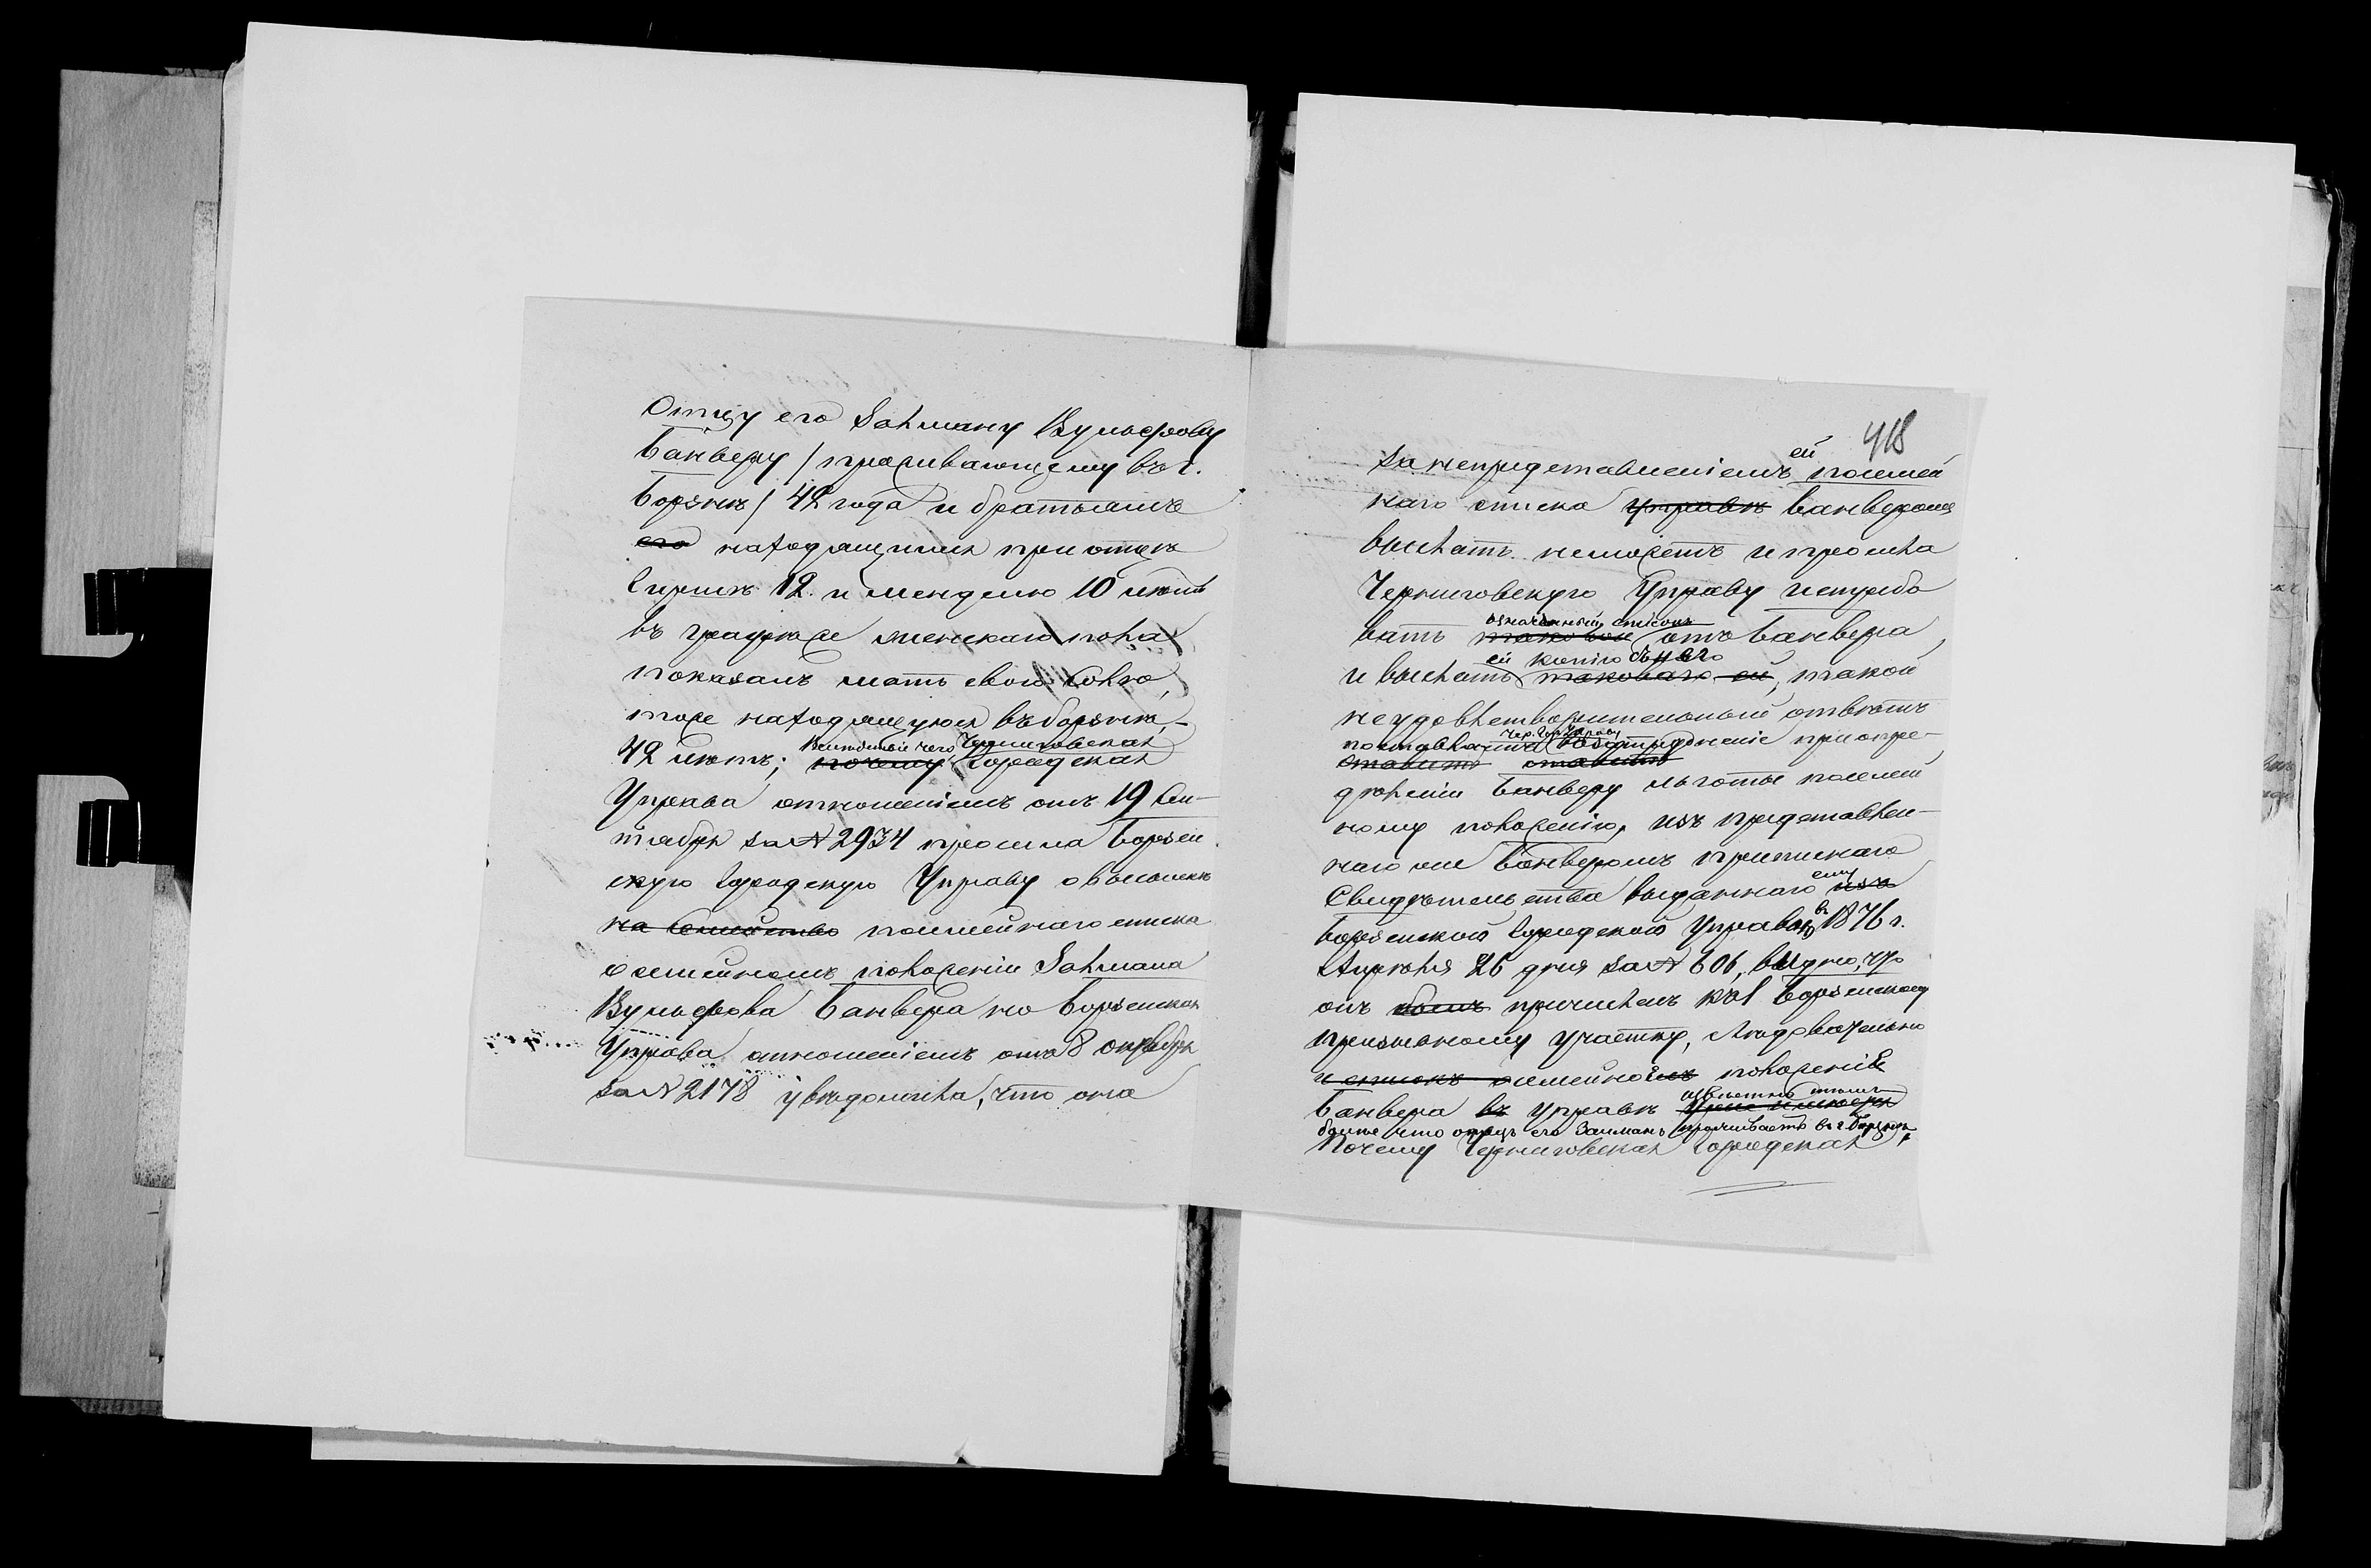 Отцу его Залману Вульфову
Банверу /проживающему въ г.
Борзнѣ/ 42 года и братьямъ
его находящимся при отцѣ
12 и Менделю 10 лѣтъ
въ графѣ же женскаго пола
показалъ мать свою
тоже находящуюся въ Борзнѣ,
Вслѣдствіе чего Черниговская
42 лѣтъ; почему Городская
Управа отношеніемъ отъ 19 Сен-
тября за № 2934 просила Борзен
скую Городскую Управу о высылкѣ
на семейство посемейнаго списка
о семейномъ положеніи Залмана
Вульфова Банвера но Борзенская
Управа отношеніемъ отъ 8 октября
за № 2178 увѣдомила, что она
418
ей
за непредставленіемъ посемей
наго списка Управѣ Банверомъ
выслать не можетъ и просила
Черниговскую Управу истребо
означенный списокъ
вать таковой отъ Банвера,
ей копію съ него
и выслать таковаго ей, такой
неудовлетворительный отвѣтъ
Чер. Гор. Управу
поставилъ въ затрудненіе при опре-
ставитъ ставитъ
дѣленіи Банверу льготы по семей
ному положенію, изъ представлен-
наго же Банверомъ приписнаго
ему
Свидѣтельства выданнаго изъ
въ
Борзенской Городской Управы 1876 г.
Апрѣля 26 дня за № 606, видно, что
онъ причисленъ къ 1 Борзенскому
призывному участку, слѣдовательно
и списокъ о семейномъ положеніе
извѣстно тѣмъ
Банвера въ Управѣ
болѣе что отецъ его Залманъ проживаетъ въ г. Борзнѣ,
Почему Черниговская Городская